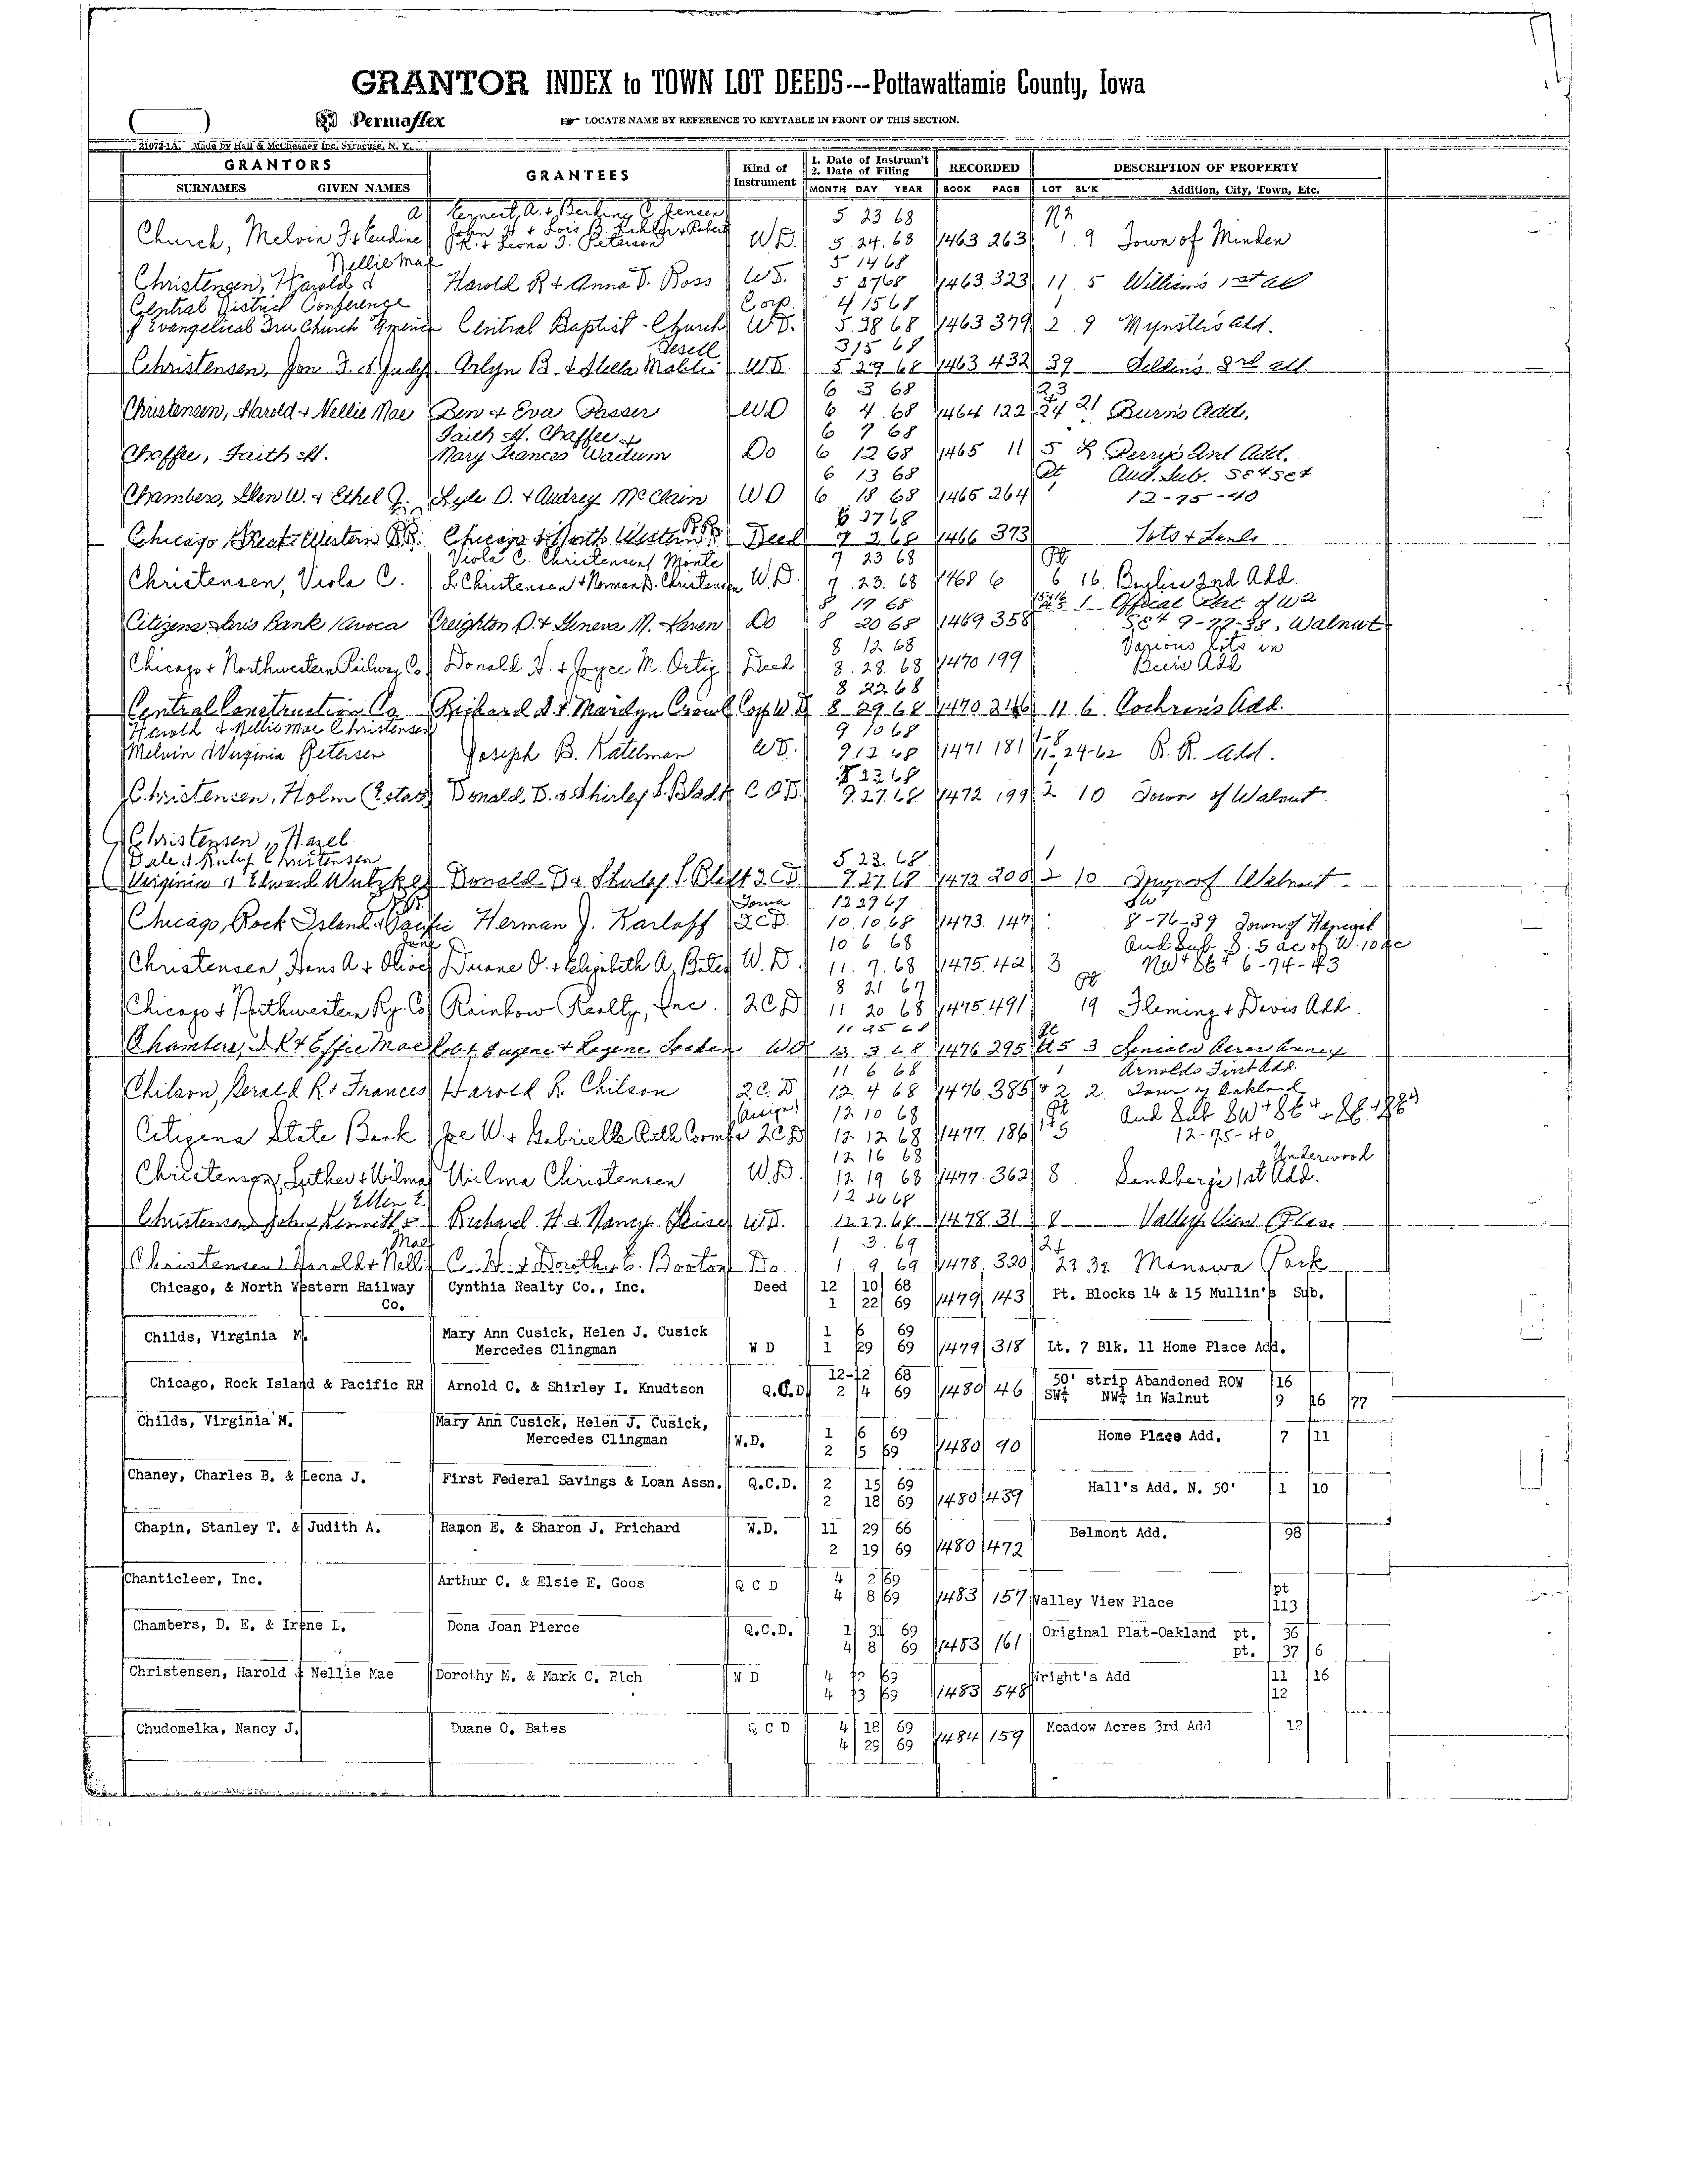 GRANTOR INDEX to TOWN LOT DEEDS---Pottawattamie County, Iowa
Permaflex LOCATE NAME BY REFERENCE TO KEYTABLE IN FRONT OF THIS SECTION.
21072-1A. Made by Hall & McChesney Inc. Syracuse, N. Y.
GRANTORS GRANTEES Kind of Instrument 1. Date of Instrum't 2. Date of Filing RECORDED DESCRIPTION OF PROPERTY
SURNAMES GIVEN NAMES MONTH DAY YEAR BOOK PAGE LOT BL'K Addition, City, Town, Etc.
5 23 68
Church, Melvin W.D. 5 24 68 1463 263 1 9 Town of Minden
Nellie Mae 5 14 68
Christensen, Harold & Harold R & Anna D. Ross WD. 5 27 68 1463 323 11 5 Williams 1st Add
Central District Conference Corp. 4 15 68 1
of Evangelical Free Church Central Baptist Church WD. 5 28 68 1463 379 2 9 Mynsters Add.
3 15 68
Christensen, Jon & Judy Arlyn B. & WD. 5 29 68 1463 432 39 3rd
6 3 68 23
Christensen, Harold & Nellie Mae Ben & Eva Passer WD 6 4 68 1464 122 24 21 Burns Add.
Faith H. Chaffee & 6 7 68
Chaffee, Faith H. Mary Frances Wadum Do 6 12 68 1465 11 5 L Perry's 2nd Add.
6 13 68 Pt Aud. Sub. SE4SE4
Chambers, Glen W. & Ethel J. Lyle D. & Audrey McClain WD 6 18 68 1465 264 1 12-75-40
6 27 68
Chicago Great Western RR. Chicago & North Western RR Deed 7 2 68 1466 373 Lots & Lands
Viola C. Christensen, Monte 7 23 68 Pt
Christensen, Viola C. L. Christensen & Norman D. Christensen W.D. 7 23 68 1468 6 6 16 Bayliss 2nd Add.
8 17 68 1 Offical Plat of W2
Citizens Savs Bank Avoca Creighton D. & Geneva M. Do 8 20 68 1469 358 SE4 9-77-38, Walnut
8 12 68 Various Lots in
Chicago & Northwestern Railway Co Donald & Joyce M. Ortig Deed 8 28 68 1470 199 Beers Add
8 22 68
Central Construction Co Richard & Marilyn Corp WD 8 29 68 1470 11 6 Cochrens Add.
Harold & Nellie Mae Christensen 9 10 68 1-8
Melvin & Virginia Petersen Joseph B. Katelman WD. 9 12 68 1471 181 24-62 R. R. Add.
8 23 68
Christensen, Holm (Estate) Donald D. & Shirley L. C O D. 9 27 68 1472 199 2 10 Town of Walnut.
Christensen, Hazel
Dale & Christensen 5 23 68 1
Virginia & Edward Donald D & Shirley L. QCD 9 27 68 1472 200 2 10 Town of Walnut
Iowa 12 29 67 SW
Chicago Rock Island & Pacific Herman J. Karloff QCD. 10 10 68 1473 147 8-76-39 Town of Hancock
Jane 10 6 68 Aud Sub S. 5 ac of W. 10 ac
Christensen, Hans A & Olive Duane O. & Elizabeth A. Bates W.D. 11 7 68 1475 42 3 NW4 SE4 6-74-43
8 21 67 Pt
Chicago & Northwestern Ry. Co Rainbow Realty, Inc. QCD 11 20 68 1475 491 19 Fleming & Davis Add.
11 25 68
Chambers, & Effie Mae Eugene & WD 12 3 68 1476 295 3 Acres Annex
11 6 68 1 Arnolds First Add.
Chilson, Gerald R & Frances Harold R. Chilson Q.C.D 12 4 68 1476 385 & 2 2 Town of Oakland
(Assign) 12 10 68 Pt Aud Sub SW4 SE4
Citizens State Bank Joe W. & Gabrielle Ruth Coomes QCD 12 12 68 1477 186 12-75-40
12 16 68 Underwood
Christensen, Luther & Wilma Wilma Christensen W.D. 12 19 68 1477 362 8 Sandbergs 1st Add.
Ellen E. 12 26 68
Christensen John Kenneth & Richard H. & Nancy WD. 12 27 68 1478 31 8 Valley View Place
Mae 1 3 69 24
Christensen Harold & Nellie C. H. & Dorothy E. Barton Do 1 9 69 1478 320 22 32 Manawa Park
Chicago, & North Western Railway Co. Cynthia Realty Co., Inc. Deed 12 10 68
1 22 69 1479 143 Pt. Blocks 14 & 15 Mullin's Sub.
Childs, Virginia M. Mary Ann Cusick, Helen J. Cusick 1 6 69
Mercedes Clingman W D 1 29 69 1479 318 Lt. 7 Blk. 11 Home Place Add.
Chicago, Rock Island & Pacific RR Arnold C. & Shirley I. Knudtson 12-12 68 50' strip Abandoned ROW 16
Q.C.D 2 4 69 1480 46 SW¼ NW¼ in Walnut 9 16 77
Childs, Virginia M. Mary Ann Cusick, Helen J. Cusick, 1 6 69
Mercedes Clingman W.D. 2 5 69 1480 90 Home Place Add. 7 11
Chaney, Charles B. & Leona J. First Federal Savings & Loan Assn. Q.C.D. 2 15 69
2 18 69 1480 439 Hall's Add. N. 50' 1 10
Chapin, Stanley T. & Judith A. Ramon E. & Sharon J. Prichard W.D. 11 29 66
2 19 69 1480 472 Belmont Add. 98
Chanticleer, Inc. Arthur C. & Elsie E. Goos Q C D 4 2 69
4 8 69 1483 157 Valley View Place pt 113
Chambers, D. E. & Irene L. Dona Joan Pierce Q.C.D. 1 31 69 Original Plat-Oakland pt. 36
4 8 69 1483 161 pt. 37 6
Christensen, Harold & Nellie Mae Dorothy M. & Mark C. Rich W D 4 69 Wright's Add 11 16
4 69 1483 548 12
Chudomelka, Nancy J. Duane O. Bates Q C D 4 18 69
4 29 69 1484 159 Meadow Acres 3rd Add 12